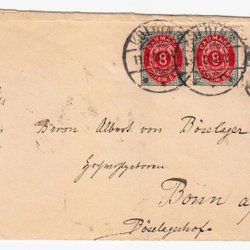 DANMARK DANMARK
8 8
Herrn Albert von Böselager
Hochwohlgeboren
Bonn a/
Böselagerhof.